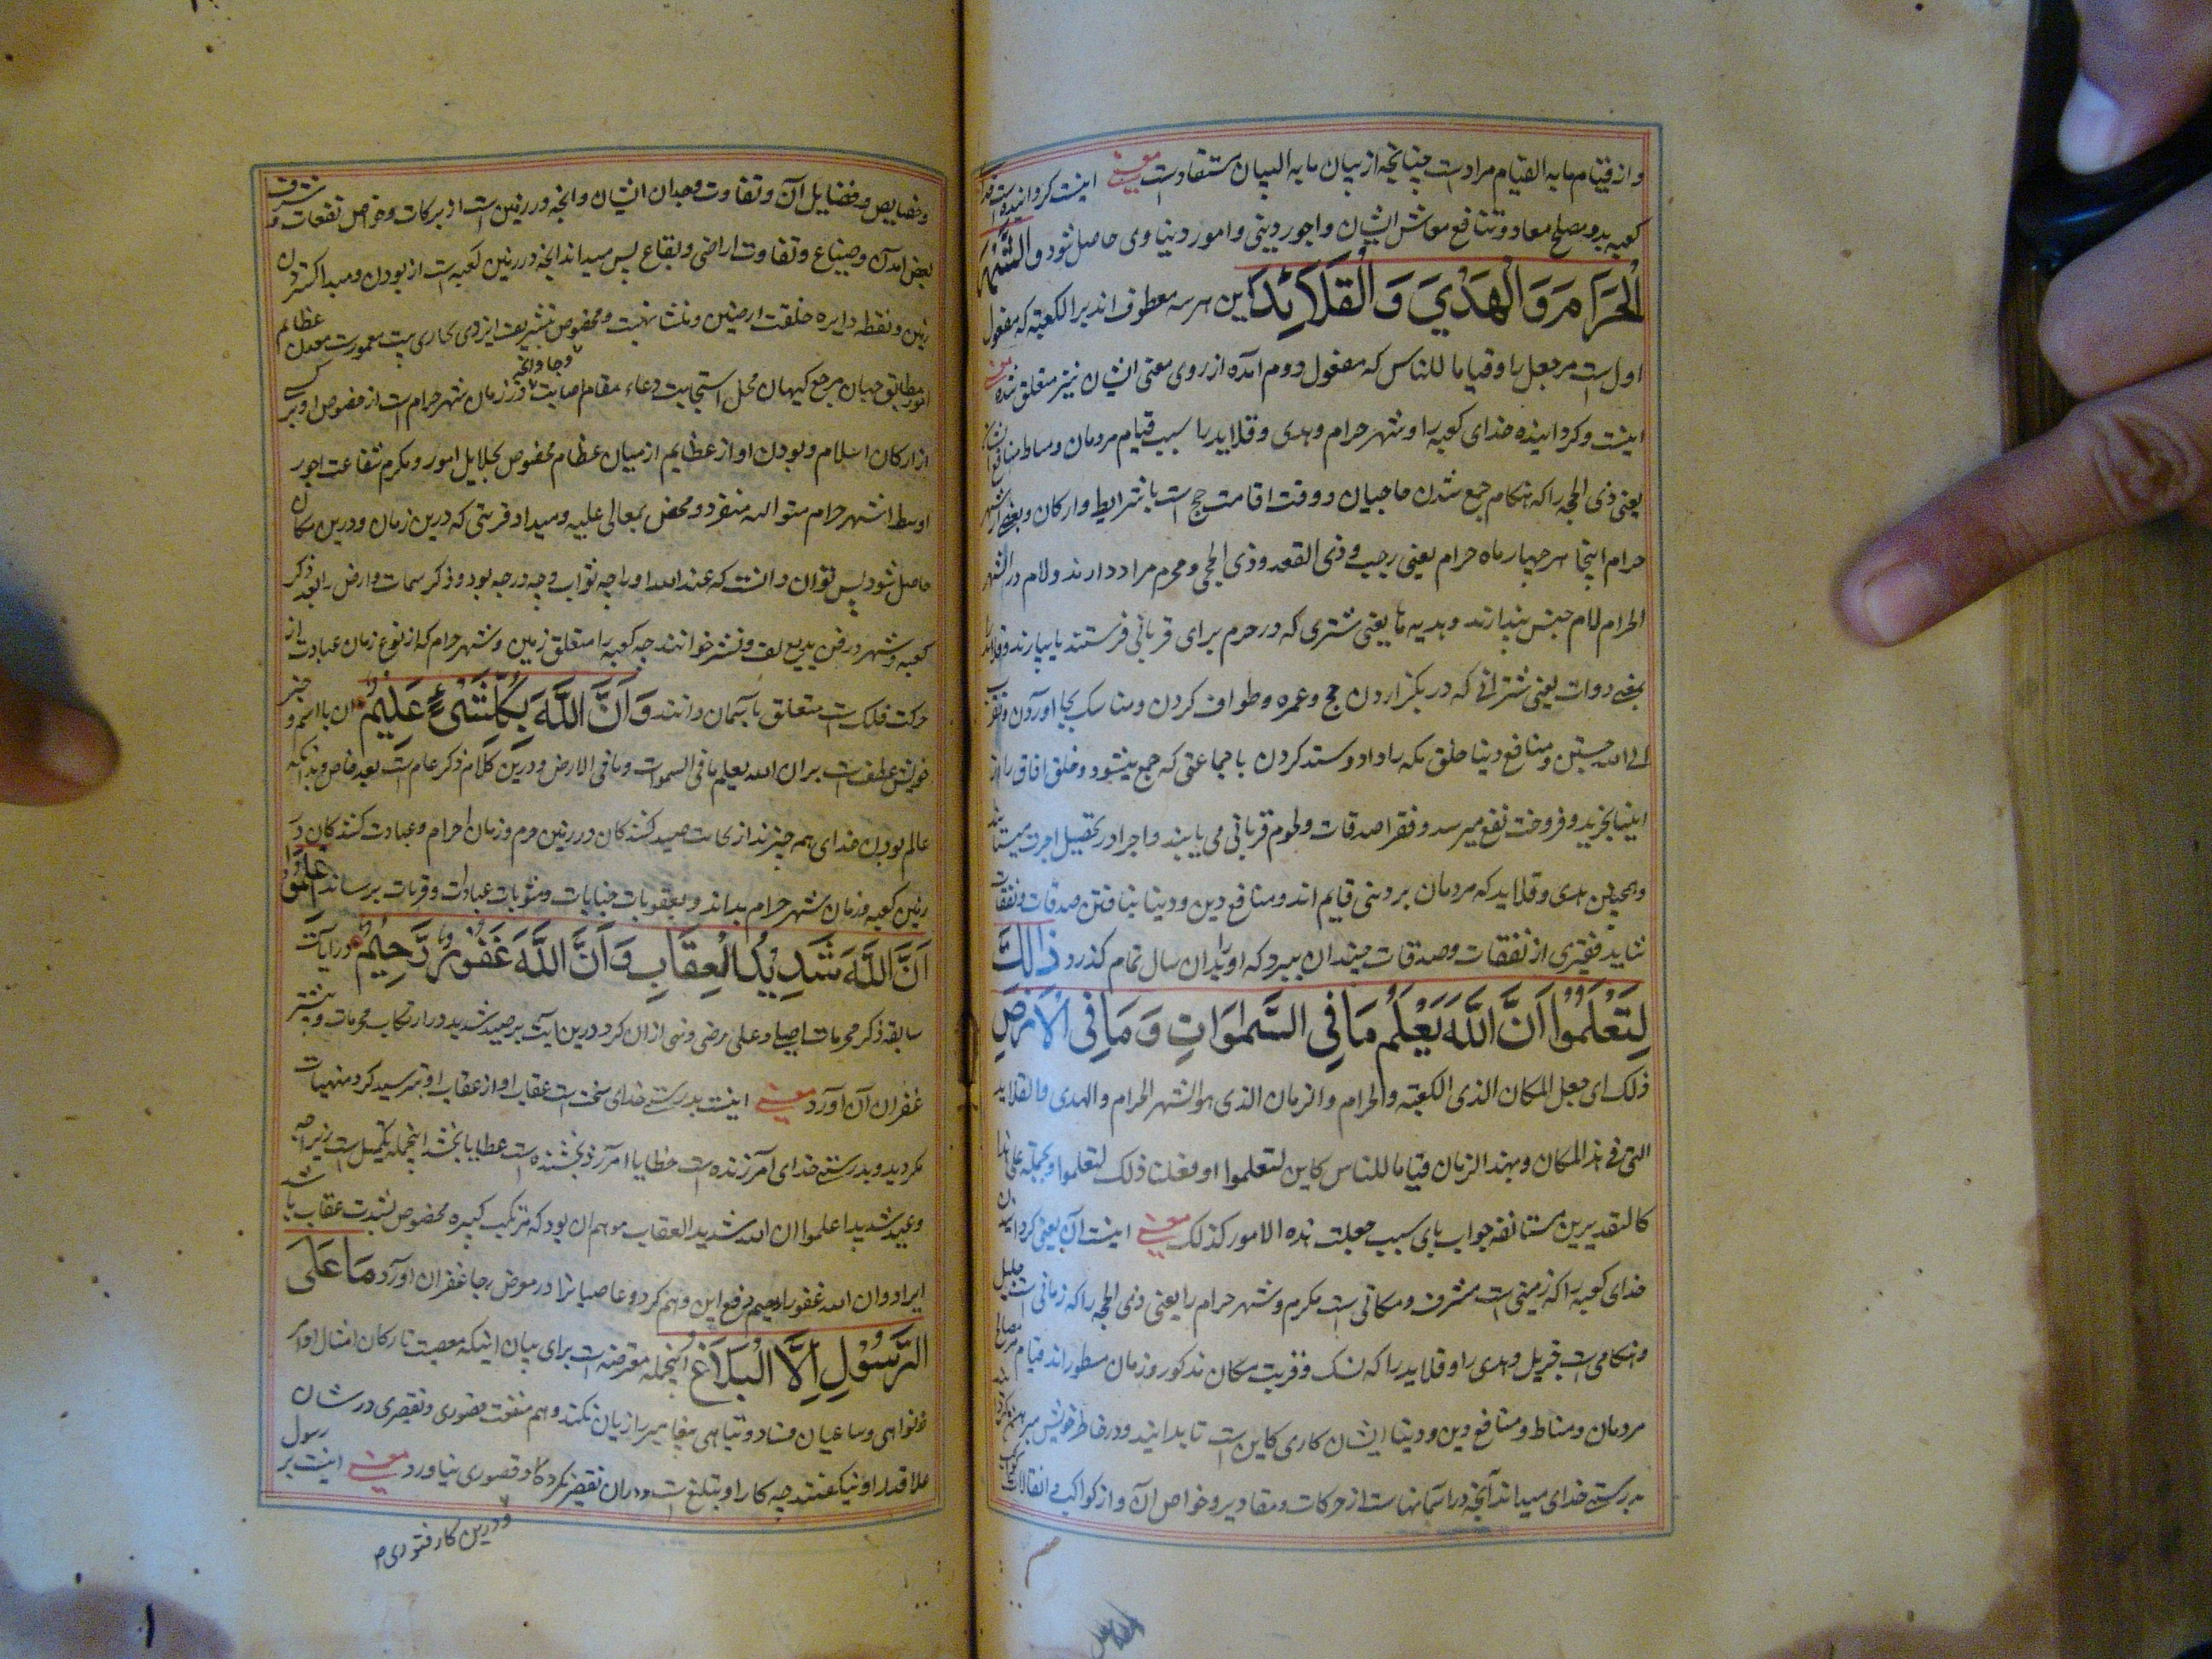 و از قیام ما به القیام مراد است چنانچه از بیان ما به البیان مستفاد است معنی اینست کردانیده است خدا
کعبه بدو مصلح معاد و منافع معاش ایشان و اجور دینی و امور دنیاوی حاصل شود وَالشَّهْرَ
الْحَرَامَ وَالْهَدْيَ وَالْقَلَائِدَ این هر سه معطوف اند بر الکعبة که مفعول
اول است مر جعل را و قیاما للناس که مفعول دوم آمده از روی معنی ایشان نیز متعلق شده معنی
اینست و کردانیده خدای کعبه را و شهر حرام و هدی و قلاید را سبب قیام مردمان و مناط منافع ایشان
یعنی ذی الحجه را که هنکام جمع شدن حاجیان و وقت اقامت حج است با شرایط و ارکان و بعضی از شهر
حرام اینجا هر چهار ماه حرام یعنی رجب و ذی القعد و ذی الحج و محرم مراد دارند و لام در الشهر
الحرام لام جنس پندارند و هدیه ها یعنی شتری که در حرم برای قربانی فرستند یا بیارند و قلاید را
بمعنی ذوات یعنی شترانی که در بکزاردن حج و عمره و طواف کردن و مناسک بجا اوردن و تقرب
الی الله جستن و منافع دنیا خلق مکه را داد و ستد کردن با جماعتی که جمع میشود و خلق افاق را از
اینها بخرید و فروخت نفع میرسد و فقرا صدقات و لحوم قربانی می یابند و اجرا در تحصیل اجرت میستانند
و همچنین هدی و قلاید که مردمان بر دنی قایم اند و منافع دین و دنیا بیافتن صدقات و نفقات
شاید فقیری از نفقات و صدقات چندان ببرد که او را بدان سال تمام کذرد ذٰلِكَ
لِتَعْلَمُوْا اَنَّ اللَّهَ يَعْلَمُ مَا فِي السَّمٰوَاتِ وَمَا فِي الْاَرْضِ
ذلک ای جعل المکان الذی الکعبة و الحرام و الزمان الذی هو الشهر الحرام و الهدی و القلاید
التی فی هذا المکان و بهذا الزمان قیاما للناس کاین لتعلموا او فعلنا ذلک لتعلموا و بجمله علی هذا
کالتقدیرین مستانفه جواب بای سبب جعلت هذه الامور کذلک معنی اینست آن یعنی کردانیدن
خدای کعبه را که زمینی است مشرف و مکانی است مکرم و شهر حرام را یعنی ذی الحجه را که زمانی است جلیل
و هنکامی است جزیل و هدی را و قلاید را که نسک و قربت مکان مذکور و زمان مسطور اند قیام مصالح
مردمان و مناط و منافع دین و دنیا ایشان کاری کاین است تا بدانید و در خاطر خویش مبرهن کردد
بدرستی خدای میداند آنچه در آسمانهاست از حرکات و مقادیر و خواص آن و از کواکب و انتقالات
و خصایص و فضایل آن و تفاوت وجدان ایشان و انچه در زمین است از برکات و خواص تفعات و شرف
بعض اماکن و ضیاع و تفاوت اراضی و بقاع پس میداند انچه در زمین کعبه است از بودن و مبدا کستردن
زمین و نقطه دایره خلقت ارضین و مخصوص بتشریف ایزدی بحاری بیت معمورت معدن عظایم
امور مطابق جهان مرجع کیهان محل استجابت دعاء مقام اصابت وجا وانچه در زمان شهر حرام است از خصوص او بر
از ارکان اسلام و بودن او از عظایم از میان عظام مخصوص بجلایل امور و مکرم شفاعت اجور
اوسط اشهر حرام متوالیه منفرد و مخص بمعالی علیه و میداند قربتی که درین زمان و درین مکان
حاصل شود پس توان دانست که عند الله او را چه ثواب و چه درجه بود و ذکر سموات و ارض را بعد ذکر
کعبه و شهر در فن بدیع لف و نشر خوانند چه کعبه را متعلق زمین و شهر حرام که از نوع زمان عبادت از
حرکت فلک است متعلق بآسمان دانند وَاَنَّ اللَّهَ بِكُلِّ شَيْءٍ عَلِيمٌ ان با اسم و خبر
خویش عطف است بر ان الله یعلم ما فی السموات و ما فی الارض و درین کلام ذکر عام است بعد خاص
عالم بودن خدای همه چیز ند از بحث صید کنندکان در زمین حرم و زمان احرام و عبادت کنندکان در
زمین کعبه و زمان شهر حرام بداند و بعقوبات جنایات و مثوبات عبادات و قربات برساند اِعْلَمُوْا
اَنَّ اللَّهَ شَدِيْدُ الْعِقَابِ وَاَنَّ اللَّهَ غَفُوْرٌ رَّحِيْمٌ در آیات
سابقه ذکر محرمات و نهی از ان کرد درین آیت بر صید شدید در ارتکاب محرمات و تبشیر
غفران آن آورد معنی اینست بدرستی خدای سخت است عقاب او از عقاب او بترسید کرد منهیات
مکردید و بدرستی خدای آمرزنده است خطایا امرزد بخشنده است عطایا بخشد اینجمله تکمیل است زیراچه
وعید شدید اعلموا ان الله شدید العقاب موهم ان بود که مرتکب کبیره مخصوص بشدت عقاب باشد
ایراد و ان الله غفور رحیم رفع این وهم کرد و عاصیانرا در موض رجا غفران اورد مَا عَلَى
الرَّسُوْلِ اِلَّا الْبَلَاغُ اینجمله معترضه است برای بیان اینکه معصیت تارکان امتثال اوامر
و نواهی و ساعیان فساد و تباهی پیغامبر را زیان نکند و هم منقصت قصوری و تقصیری در شان
ملا قدر او نیکفتند چه کار او تبلیغ است و دران تقصیر نکرد و قصوری نیاورد معنی اینست بر رسول
و درین کار فتوری م